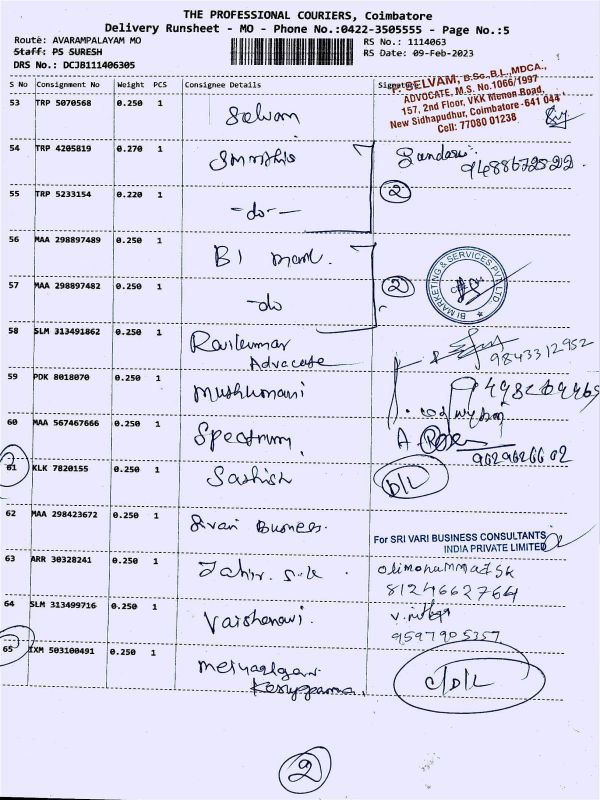 THE PROFESSIONAL COURIERS, Coimbatore
Delivery Runsheet - MO - Phone No.:0422-3505555 - Page No.:5
Route: AVARAMPALAYAM MO
RS No.: 1114063
Staff: PS SURESH
RS Date: 09-Feb-2023
DRS No.: DCJB111406305
S No Consignment No Weight PCS Consignee Details Signature
SELVAM, B.Sc.,B.L.,MDCA.,
ADVOCATE, M.S. No.1066/1997
157, 2nd Floor, VKK Menon Road,
New Sidhapudhur, Coimbatore-641 044
Cell: 77080 01238
53 TRP 5070568 0.250 1 Selvam
54 TRP 4205819 0.270 1
9488672522
55 TRP 5233154 0.220 1 -do- 2
56 MAA 298897489 0.250 1 BI
BI MARKETING & SERVICES PVT. LTD.
57 MAA 298897482 0.250 1 -do 2
58 SLM 313491862 0.250 1 Ravikumar
Advocate
9843312952
59 PDK 8018070 0.250 1
60 MAA 567467666 0.250 1 Spectrum
9629626602
61 KLK 7820155 0.250 1 Sathish D/L
62 MAA 298423672 0.250 1 Business
For SRI VARI BUSINESS CONSULTANTS
INDIA PRIVATE LIMITED
63 ARR 30328241 0.250 1
8124662764
64 SLM 313499716 0.250 1 Vaishanavi
9597905357
65 IXM 503100491 0.250 1
C/D/L
2